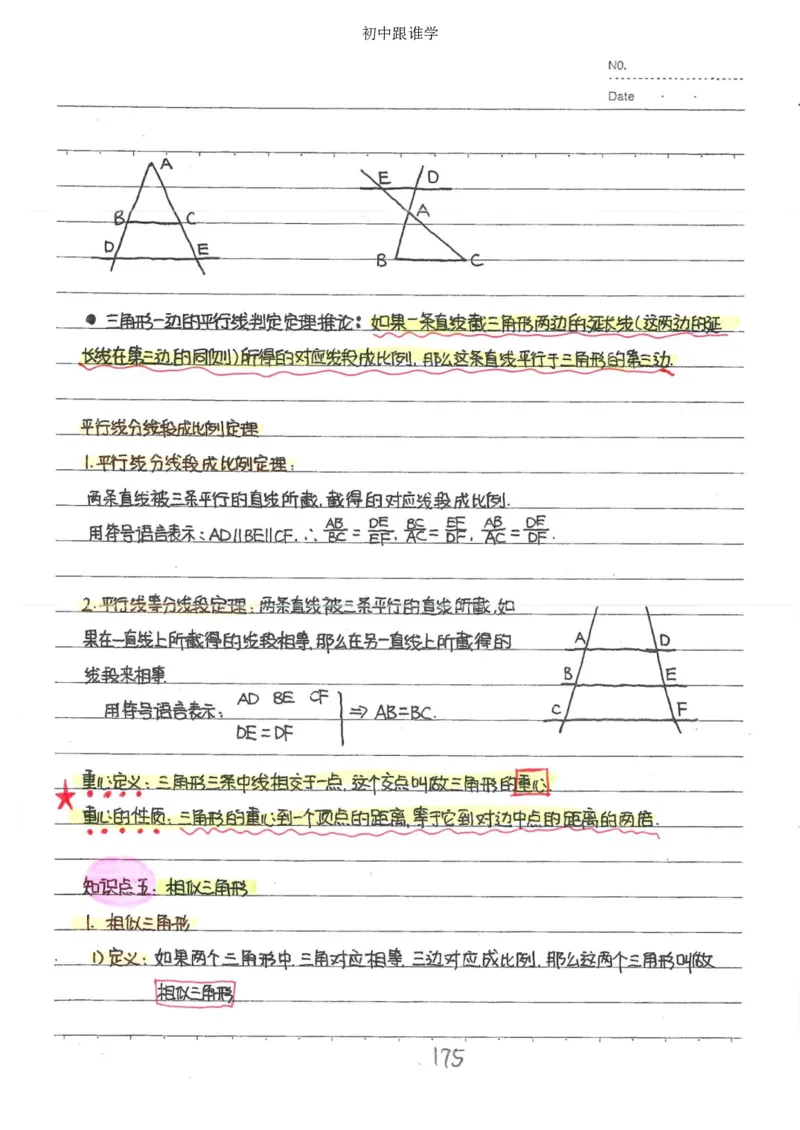 初中跟谁学
NO.
Date
A
B C
D E
E D
A
B C
三角形一边的平行线判定定理推论：如果一条直线截三角形两边的延长线（这两边的延
长线在第三边的同侧）所得的对应线段成比例，那么这条直线平行于三角形的第三边.
平行线分线段成比例定理
1.平行线分线段成比例定理：
两条直线被三条平行的直线所截，截得的对应线段成比例.
用符号语言表示：AD∥BE∥CF，∴ AB/BC = DE/EF，BC/AC = EF/DF，AB/AC = DE/DF.
2.平行线等分线段定理：两条直线被三条平行的直线所截，如
果在一直线上所截得的线段相等，那么在另一直线上所截得的
线段来相等
用符号语言表示： AD BE CF
DE=DF ⇒ AB=BC.
A D
B E
C F
重心定义：三角形三条中线相交于一点，这个交点叫做三角形的重心.
★
重心的性质：三角形的重心到一个顶点的距离，等于它到对边中点的距离的两倍.
知识点五：相似三角形
1. 相似三角形
1）定义：如果两个三角形中，三角对应相等，三边对应成比例，那么这两个三角形叫做
相似三角形
175